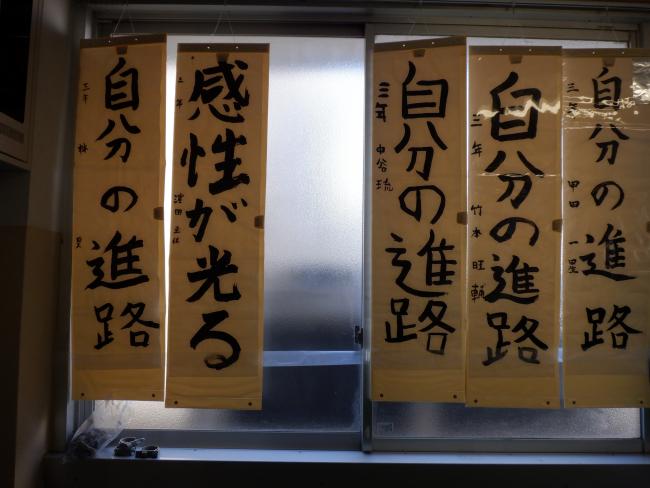 自分の進路
三年 林
感性が光る
自分の進路
三年 中谷琉
自分の進路
三年 竹本旺輔
自分の進路
三年 甲田一星